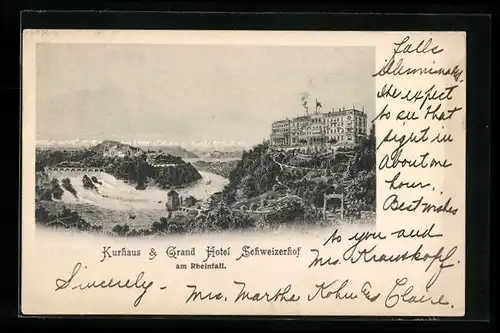 Falls
illuminated,
We expect
to see that
sight in
about one
hour.
Best wishes
to you and
Mrs. Krauskopf.
Kurhaus & Grand Hotel Schweizerhof
am Rheinfall.
Sincerely -
Mrs. Martha Kohn Claire.